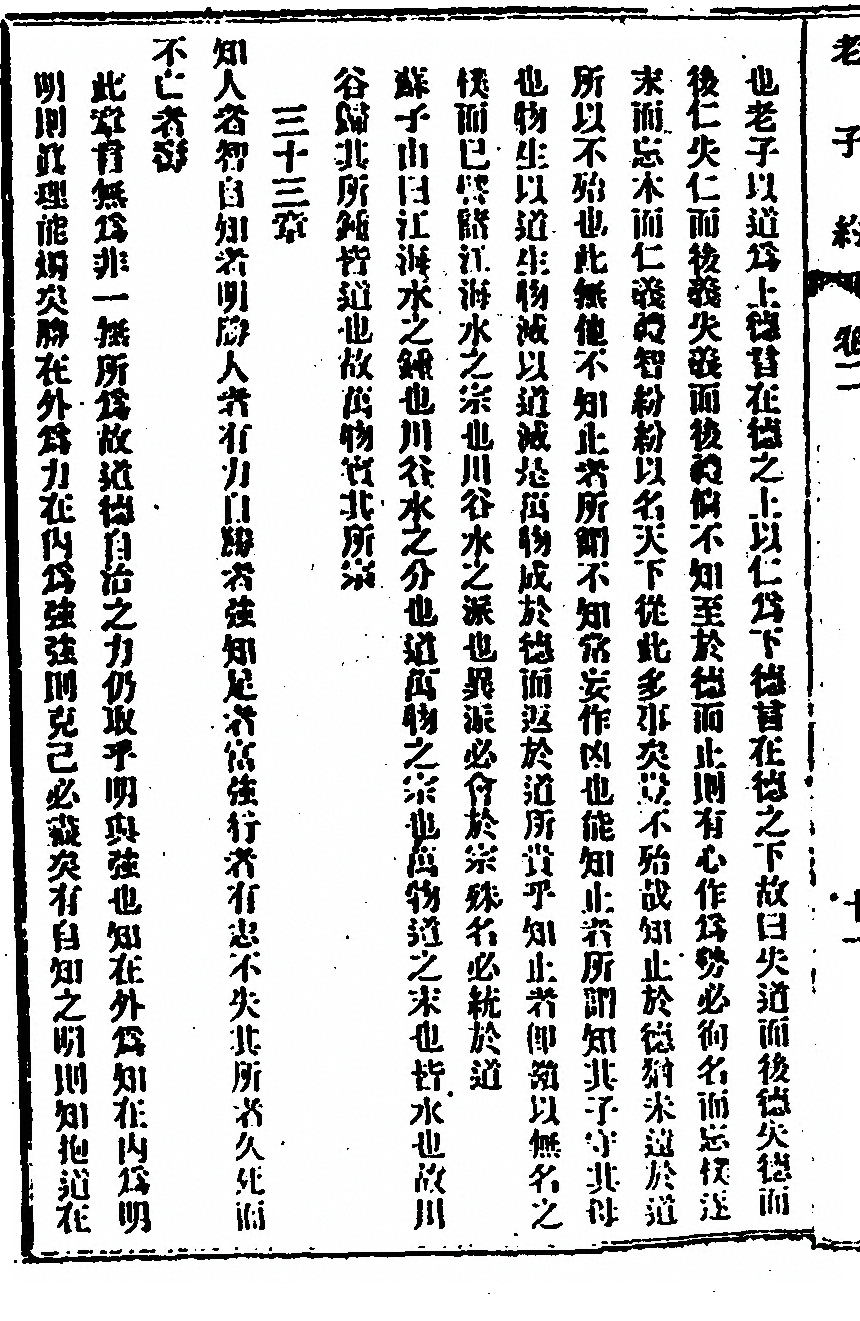 老子約 卷二 十一
也老子以道爲上德蓋在德之上以仁爲下德蓋在德之下故曰失道而後德失德而
後仁失仁而後義失義而後禮倘不知至於德而止則有心作爲勢必徇名而忘樸逐
末而忘本而仁義禮智紛紛以名天下從此多事矣豈不殆哉知止於德猶未遠於道
所以不殆也此無他不知止者所謂不知常妄作凶也能知止者所謂知其子守其母
也物生以道生物滅以道滅是萬物成於德而返於道所貴乎知止者仰鎮以無名之
樸而已譬諸江海水之宗也川谷水之派也異派必會於宗殊名必統於道
蘇子由曰江海水之鍾也川谷水之分也道萬物之宗也萬物道之末也皆水也故川
谷歸其所鍾皆道也故萬物賓其所宗
三十三章
知人者智自知者明勝人者有力自勝者強知足者富強行者有志不失其所者久死而
不亡者壽
此章言無爲非一無所爲故道德自治之力仍取乎明與強也知在外爲知在內爲明
明則眞理能燭矣勝在外爲力在內爲強強則克己必嚴矣有自知之明則知抱道在